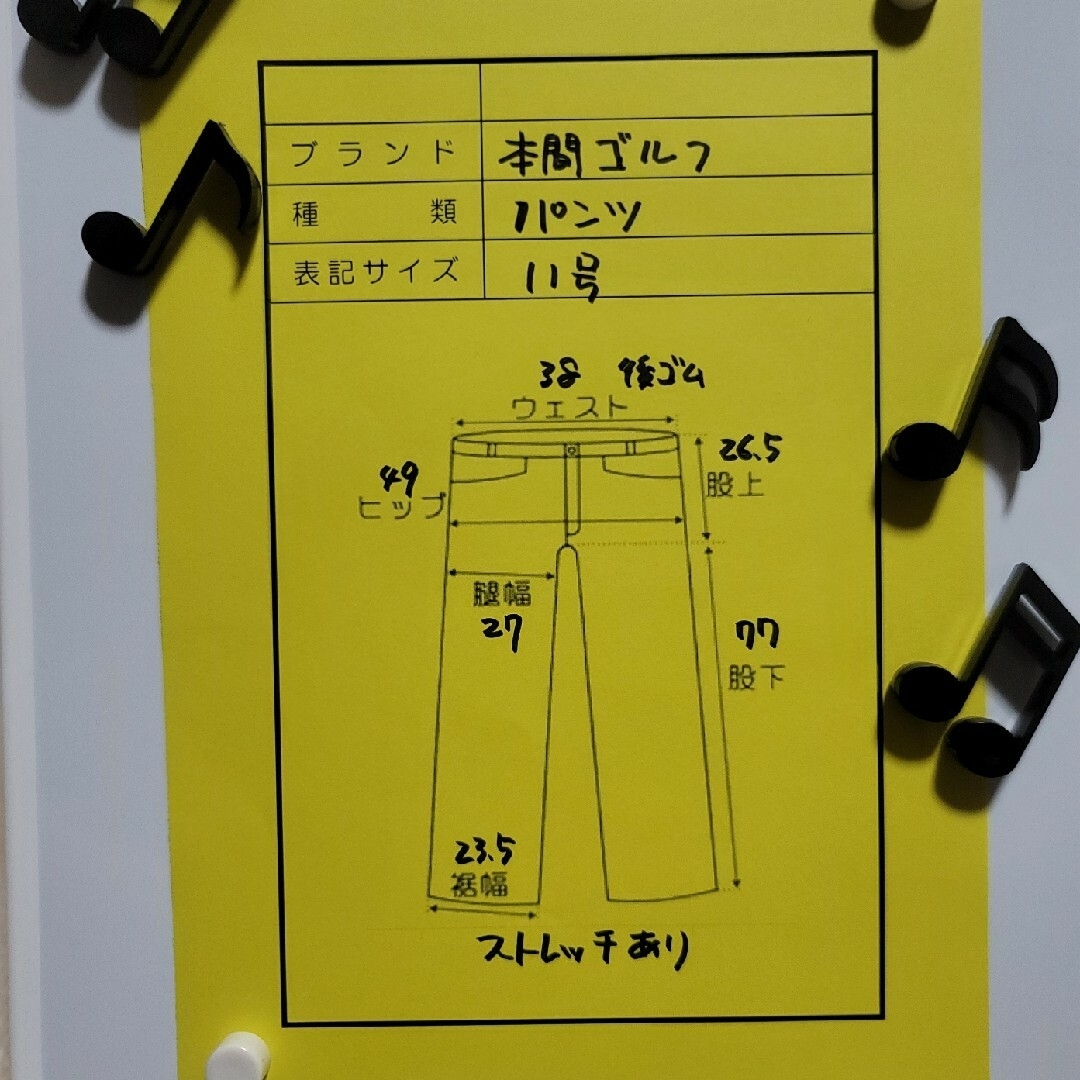 ブランド 本間ゴルフ
種類 パンツ
表記サイズ 11号
38 後ゴム
ウェスト
26.5
股上
49
ヒップ
腿幅
27
77
股下
23.5
裾幅
ストレッチあり